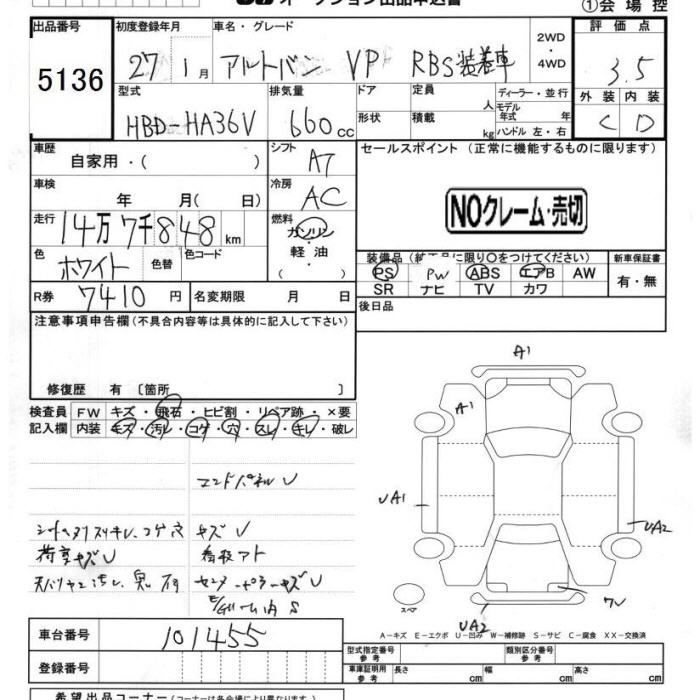 オークション出品申込書
①会場控
出品番号 5136
初度登録年月 27 1月
車名・グレード アルトバン VP RBS装着車
2WD・4WD
評価点 3.5
外装 C 内装 D
型式 HBD-HA36V
排気量 660cc
ドア 形状
定員 人
積載 kg
ディーラー・並行
モデル年式 年
ハンドル 左・右
車歴 自家用・( )
シフト AT
セールスポイント(正常に機能するものに限ります)
車検 年 月( 日)
冷房 AC
NOクレーム・売切
走行 14万7千848km
燃料 ガソリン・軽油・
色 ホワイト 色替 色コード
装備品(純正品に限り○をつけてください)
新車保証書
PS PW ABS エアB AW
SR ナビ TV カワ
有・無
R券 7410円
名変期限 月 日
後日品
注意事項申告欄(不具合内容等は具体的に記入して下さい)
修復歴 有〔箇所 〕
検査員記入欄
FW キズ・飛石・ヒビ割・リペア跡・×要
内装 キズ・汚レ・コゲ・穴・スレ・キレ・破レ
エンドパネルU
キズU
荷室キズU
看板アト
A1
A1
UA1
UA2
UA2
スペア
A-キズ E-エクボ U-凹み W-補修跡 S-サビ C-腐食 XX-交換済
車台番号 101455
登録番号
型式指定番号 参考
類別区分番号 参考
車庫証明用 参考
長さ cm 幅 cm 高さ cm
希望出品コーナー(コーナーは各会場により異なります)